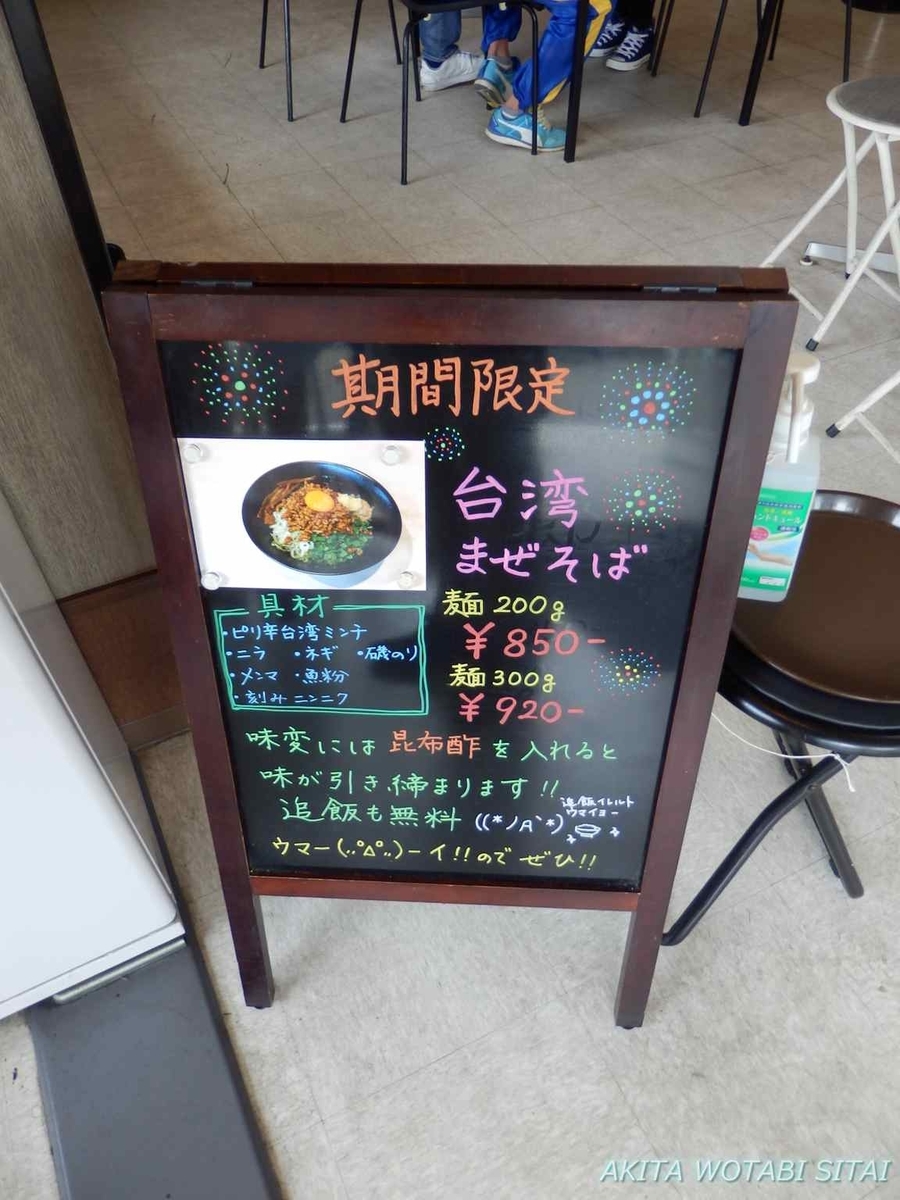 期間限定
台湾
まぜそば
麺 200g
¥850-
麺 300g
¥920-
具材
・ピリ辛台湾ミンチ
・ニラ ・ネギ ・磯のり
・メンマ ・魚粉
・刻みニンニク
味変には 昆布酢 を入れると
味が引き締まります!!
追飯も無料 ((*ノA`*)
追飯イレルト
ウマイヨー
ウマー(..°Δ°..)ーイ!!ので ぜひ!!
AKITA WOTABI SITAI